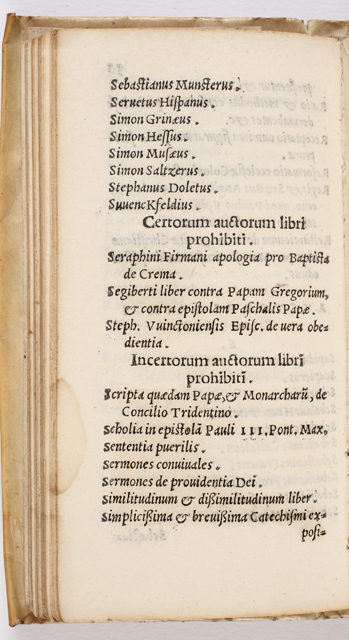 Sebastianus Munsterus.
Seruetus Hispanus.
Simon Grinæus.
Simon Hessus.
Simon Musæus.
Simon Saltzerus.
Stephanus Doletus.
SuuencKfeldius.
Certorum auctorum libri
prohibiti.
Seraphini Firmani apologia pro Baptista
de Crema.
Segiberti liber contra Papam Gregorium,
& contra epistolam Paschalis Papæ.
Steph. Vuinctoniensis Episc. de uera obe-
dientia.
Incertorum auctorum libri
prohibiti.
Scripta quædam Papæ, & Monarcharū, de
Concilio Tridentino.
Scholia in epistolā Pauli III. Pont. Max,
Sententia puerilis.
Sermones conuiuales.
Sermones de prouidentia Dei.
Similitudinum & dißimilitudinum liber.
Simplicißima & breuißima Catechismi ex-
posi-